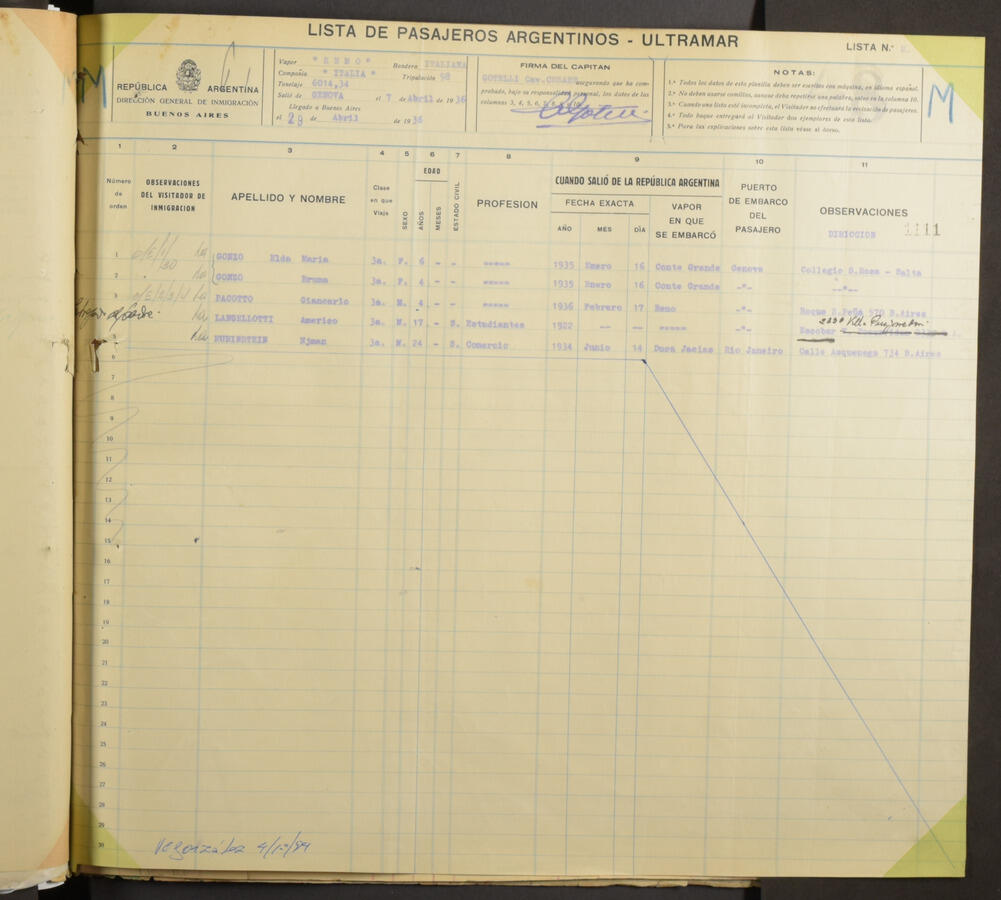 LISTA DE PASAJEROS ARGENTINOS - ULTRAMAR
LISTA N.°
REPÚBLICA ARGENTINA
DIRECCIÓN GENERAL DE INMIGRACIÓN
BUENOS AIRES
Vapor " RENO " Bandera ITALIANA
Compañía " ITALIA " Tripulación 98
Tonelaje 6014,34
Salió de GENOVA el 7 de Abril de 1936
Llegado a Buenos Aires
el 29 de Abril de 1936
FIRMA DEL CAPITAN
GOTELLI Cav.CESARE asegurando que ha comprobado, bajo su responsabilidad personal, los datos de las
columnas 3, 4, 5, 6, 7, 8, 9 y 10.
NOTAS:
1.ª Todos los datos de esta planilla deben ser escritos con máquina, en idioma español.
2.ª No deben usarse comillas, aunque deba repetirse una palabra, salvo en la columna 10.
3.ª Cuando una lista esté incompleta, el Visitador no efectuará la revisación de pasajeros.
4.ª Todo buque entregará al Visitador dos ejemplares de esta lista.
5.ª Para las explicaciones sobre esta lista véase al dorso.
M
M
1 2 3 4 5 6 7 8 9 10 11
Número de orden
OBSERVACIONES DEL VISITADOR DE INMIGRACION
APELLIDO Y NOMBRE
Clase en que Viaja
SEXO
EDAD
AÑOS
MESES
ESTADO CIVIL
PROFESION
CUANDO SALIÓ DE LA REPÚBLICA ARGENTINA
FECHA EXACTA
AÑO MES DÍA
VAPOR EN QUE SE EMBARCÓ
PUERTO DE EMBARCO DEL PASAJERO
OBSERVACIONES
DIRECCION
1111
1 GONZO Elda Maria 3a. F. 6 - - ----- 1935 Enero 16 Conte Grande Genova Collegio S.Rosa - Salta
2 GONZO Bruna 3a. F. 4 - - ----- 1935 Enero 16 Conte Grande -"- --"--
3 PACOTTO Giancarlo 3a. M. 4 - - ----- 1936 Febrero 17 Reno -"- Roque S.Peña 570 B.Aires
4 LANGELLOTTI Americo 3a. M. 17 - S. Estudiantes 1922 -- -- ----- -"- Escobar
5 RUBINSTEIN Njman 3a. M. 24 - S. Comercio 1934 Junio 14 Rio Janeiro Calle Azquenega 734 B.Aires
6
7
8
9
10
11
12
13
14
15
16
17
18
19
20
21
22
23
24
25
26
27
28
29
30